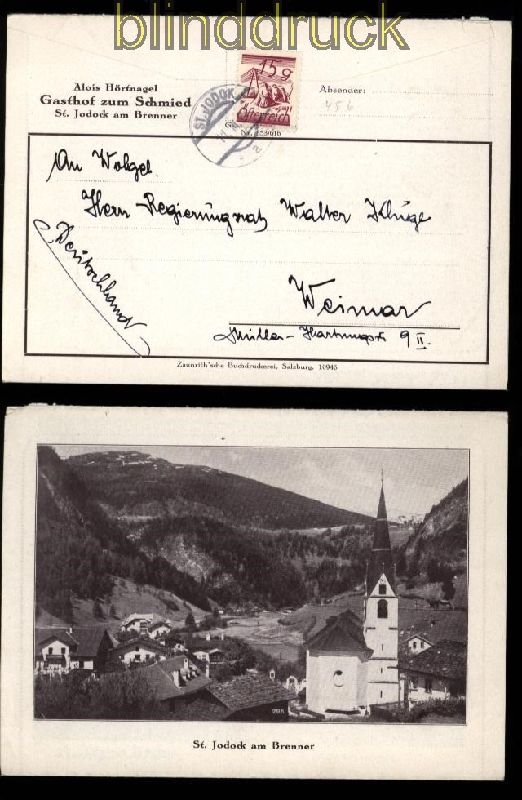 blinddruck
Alois Hörfnagel
Gasthof zum Schmied
St. Jodock am Brenner
15 g
Österreich
ST. JODOK
Absender:
456
An Wolgeb.
Herrn Regierungsrat Walter Kluge
Weimar
9 II.
Deutschland
Zaunrith'sche Buchdruckerei, Salzburg. 10945
St. Jodock am Brenner